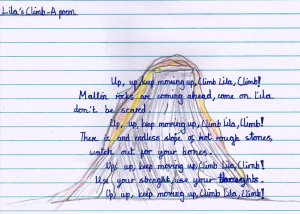 Lila's Climb-A poem
Up, up, keep moving up, Climb Lila, Climb!
Maltin rocks are coming ahead, come on Lila
don't be scared
Up, up, keep moving up, Climb Lila, Climb!
There is and endless slope of hot rough stones,
watch out for your bones.
Up, up, keep moving up, Climb Lila, Climb!
Use your strenght, use your thoughts.
Up, up, keep moving up, Climb Lila, Climb!